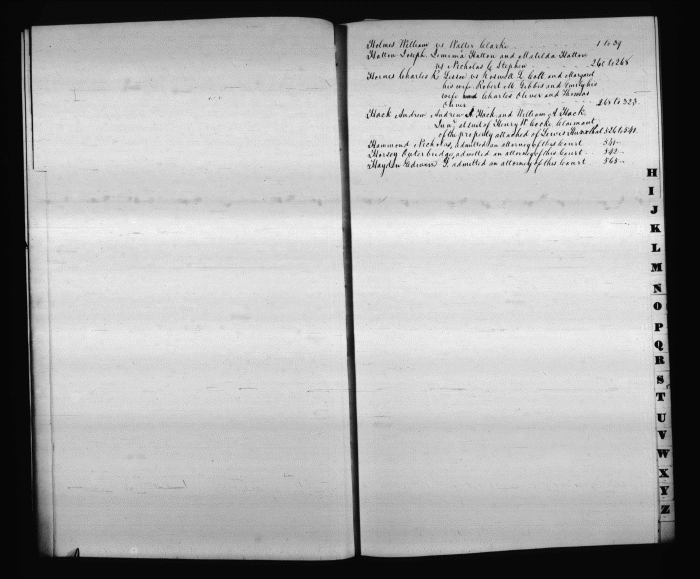 Holmes William vs Walter Clarke 1 to 39
Hatton Joseph, Jemima Hatton and Matilda Hatton
vs Nicholas G Stephen 260 to 268
Homes Charles R vs Roswell L Colt and Margaret
his wife Robert M. Gibbes and Emily his
wife and Charles Oliver and Thomas
Oliver 268 to 323
Hack Andrew, Andrew A Hack and William A Hack
at suit of Henry W Cocke Claimant
of the property attached of Lewis 526 & 541
Hammond Nicholas, admitted an attorney of this Court 541
Horsey Outerbridge, admitted an attorney of this Court 542
Hayden Edwin G. admitted an attorney of this Court 565
H
I
J
K
L
M
N
O
P
Q
R
S
T
U
V
W
X
Y
Z